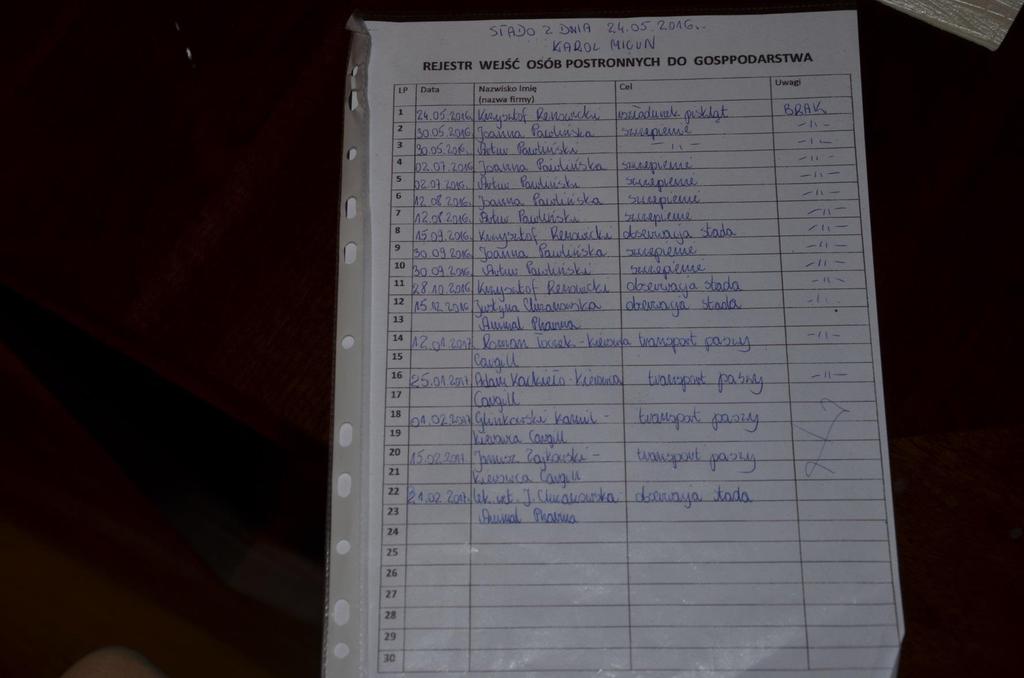 STADO Z DNIA 24.05.2016.
KAROL MICUN
REJESTR WEJŚĆ OSÓB POSTRONNYCH DO GOSPPODARSTWA
LP Data Nazwisko Imię (nazwa firmy) Cel Uwagi
1 24.05.2016 Krzysztof Renowicki rozładunek piskląt BRAK
2 30.05.2016 Joanna Pawlińska szczepienie -11-
3 30.05.2016. Artur Pawliński -11- -11-
4 02.07.2016 Joanna Pawlińska szczepienie -11-
5 02.07.2016. Artur Pawliński szczepienie -11-
6 12.08.2016. Joanna Pawlińska szczepienie -11-
7 12.08.2016. Artur Pawliński szczepienie -11-
8 15.09.2016. Krzysztof Renowicki obserwacja stada -11-
9 30.09.2016. Joanna Pawlińska szczepienie -11-
10 30.09.2016. Artur Pawliński szczepienie -11-
11 28.10.2016. Krzysztof Renowicki obserwacja stada -11-
12 15.12.2016 Justyna obserwacja stada -11-
13 Animal Pharma
14 12.01.2017 Roman - kierowca transport paszy -11-
15 Cargill
16 25.01.2017 Adam - kierowca transport paszy -11-
17 Cargill
18 01.02.2017 Glinkowski Kamil - transport paszy
19 kierowca Cargill
20 15.02.2017. Janusz Zajkowski - transport paszy
21 kierowca Cargill
22 21.02.2017. lek. wet. J. obserwacja stada
23 Animal Pharma
24
25
26
27
28
29
30